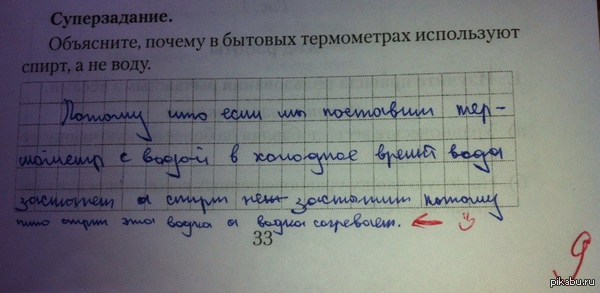 Суперзадание.
Объясните, почему в бытовых термометрах используют
спирт, а не воду.
Потому что если мы поставим тер-
мометр с водой в холодное время вода
застынет а спирт не застынит потому
что спирт это водка а водка согревает.
33
9
pikabu.ru